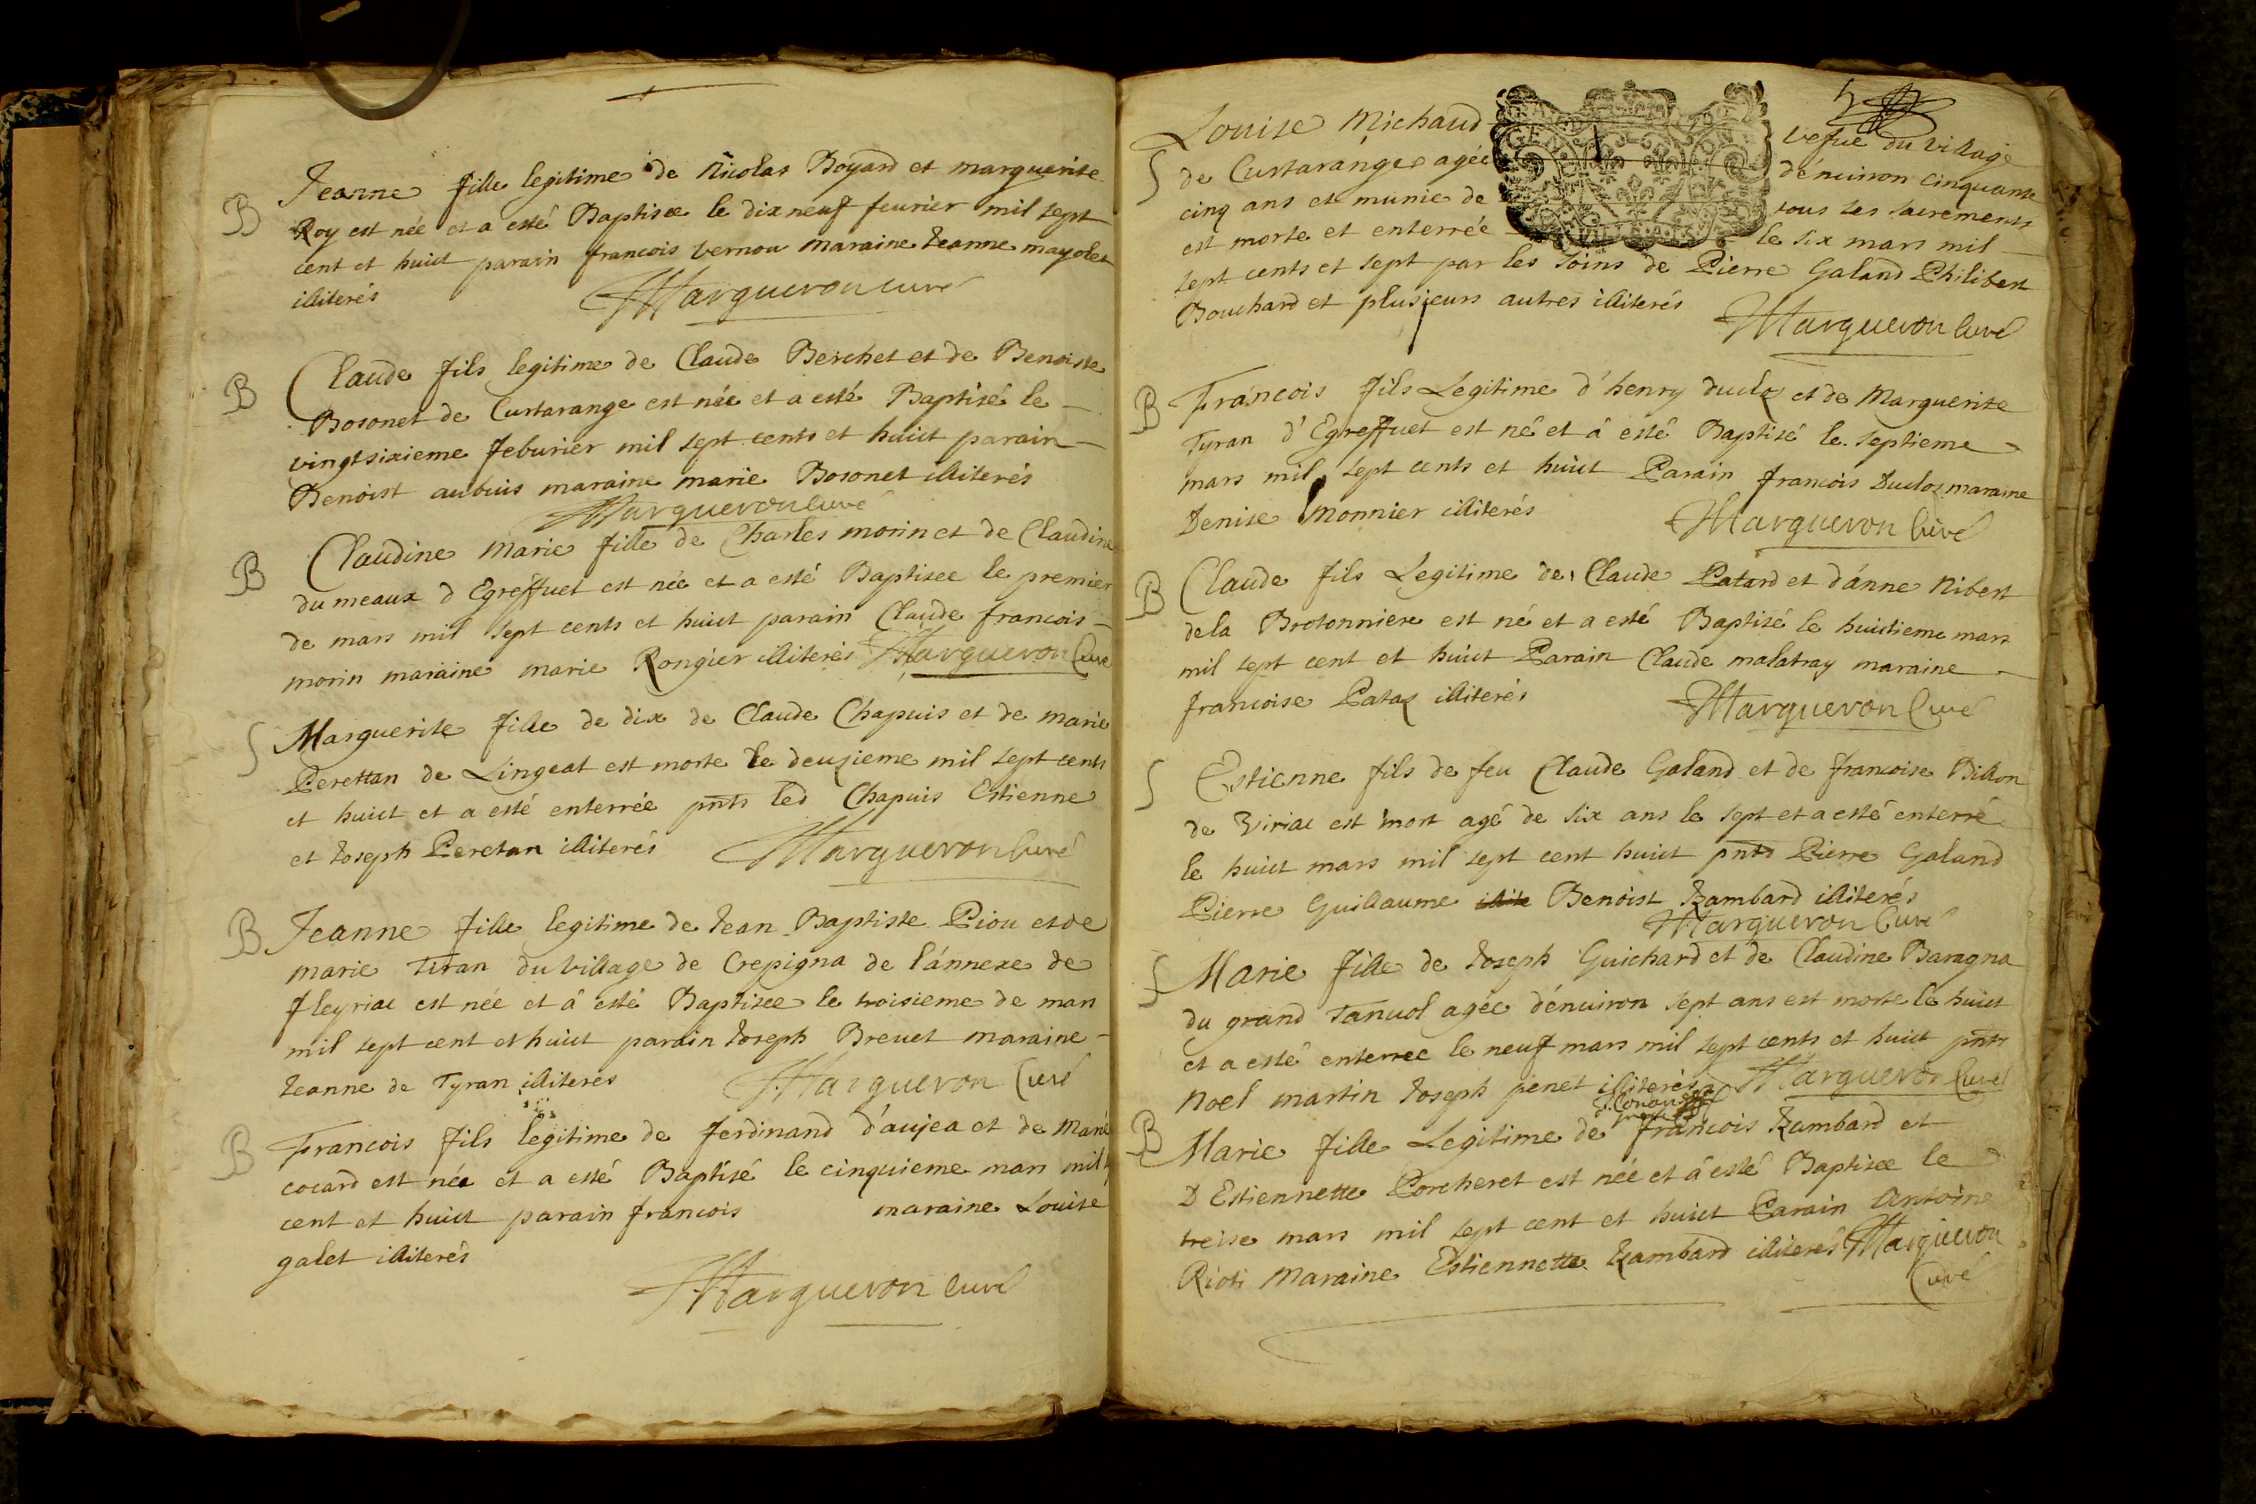 B
Jeanne fille legitime de Nicolas Boyard et marguerite
Roy est née et a esté Baptisee le dix neuf feurier mil sept
cent et huict parain francois vernou maraine Jeanne mayolet
illiterés Margueron curé
B
Claude fils legitime de Claude Berchet et de Benoiste
Bosonet de Curtarange est née et a esté Baptisé le
vingtsixieme feburier mil sept cents et huict parain
Benoist aubuis maraine marie Bosonet illiterés
Margueron curé
B
Claudine Marie fille de Charles morin et de Claudine
du meaux d Egreffuet est née et a esté Baptisee le premier
de mars mil sept cents et huict parain Claude francois
morin maraine marie Rongier illiterés Margueron Curé
S
Marguerite fille de dix de Claude Chapuis et de marie
Perettan de Lingeat est morte le deuxieme mil sept cents
et huict et a esté enterrée pnts led Chapuis Estienne
et Joseph Peretan illiterés Margueron Curé
B
Jeanne fille legitime de Jean Baptiste Piou et de
marie Tiran du village de Crepigna de l'annexe de
fleyriac est née et â esté Baptisee le troisieme de mars
mil sept cent et huict parain Joseph Breuet maraine
Jeanne de Tyran illiteres Margueron Curé
B
Francois fils legitime de ferdinand d'aujea et de Marie
cocard est née et a esté Baptisé le cinquieme mars mil
cent et huict parain francois maraine Louise
galet illiterés
Margueron curé
S
Louise Michaud vefue du village
de Curtarange agée dénuiron cinquante
cinq ans et munie de tous ses sacrements
est morte et enterrée le six mars mil
sept cents et sept par les soins de Pierre Galand Philibert
Bouchard et plusieurs autres illiterés
Margueron Curé
B
Francois fils Legitime d'henry duclos et de Marguerite
Tyran d'Egreffuet est né et â esté Baptisé le septieme
mars mil sept cents et huict Parain francois Duclos maraine
Denise Monnier illiterés
Margueron Curé
B
Claude fils Legitime de Claude Patard et d'anne Nibert
de la Brotonniere est né et a esté Baptisé le huictieme mars
mil sept cent et huict Parain Claude malatray maraine
francoise Patar illiterés
Margueron Curé
S
Estienne fils de feu Claude Galand et de francoise Billon
de Viriac est mort agé de six ans le sept et a esté enterré
le huict mars mil sept cent huict pnts Pierre Galand
Pierre Guillaume illite Benoist Rambard illiterés
Margueron Curé
S
Marie fille de Joseph Guichard et de Claudine Baragna
du grand Tanuol agée dénuiron sept ans est morte le huict
et a esté enterree le neuf mars mil sept cents et huict pnts
Noel martin Joseph penet illiterés Margueron Curé
B
Marie fille Legitime de francois Rambard et
D Estiennette Porcheret est née et â esté Baptisee le
treise mars mil sept cent et huict Parain Antoine
Rioti Maraine Estiennette Rambard illiterés Margueron
Curé